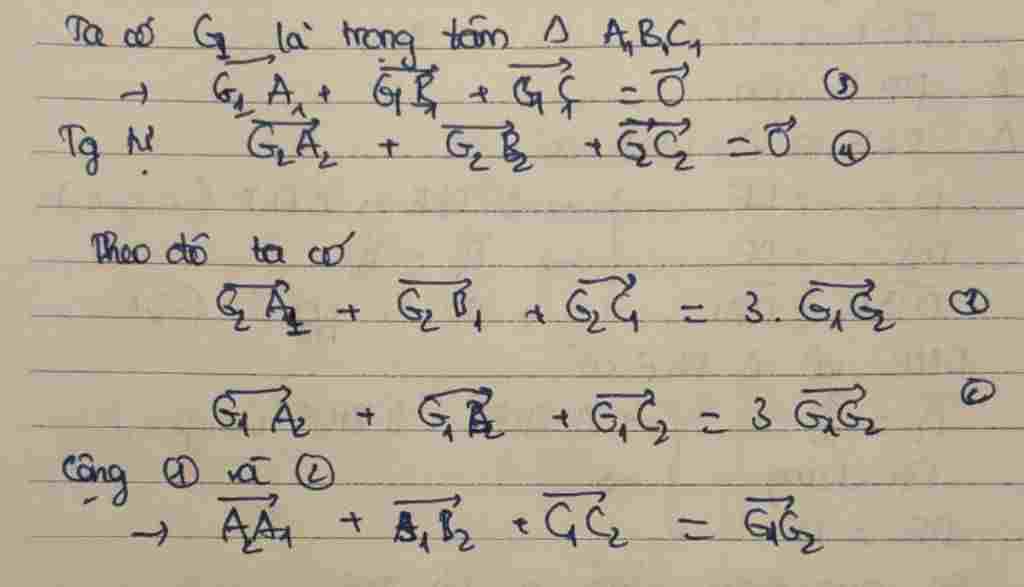 Ta có G₁ là trọng tâm Δ A₁B₁C₁
→ G₁A₁ + G₁B₁ + G₁C₁ = 0 ③
Tg tự G₂A₂ + G₂B₂ + G₂C₂ = 0 ④
Theo đó ta có
G₂A₁ + G₂B₁ + G₂C₁ = 3. G₁G₂ ①
G₁A₂ + G₁B₂ + G₁C₂ = 3 G₁G₂ ②
Cộng ① và ②
→ A₂A₁ + B₁B₂ + C₁C₂ = G₁G₂